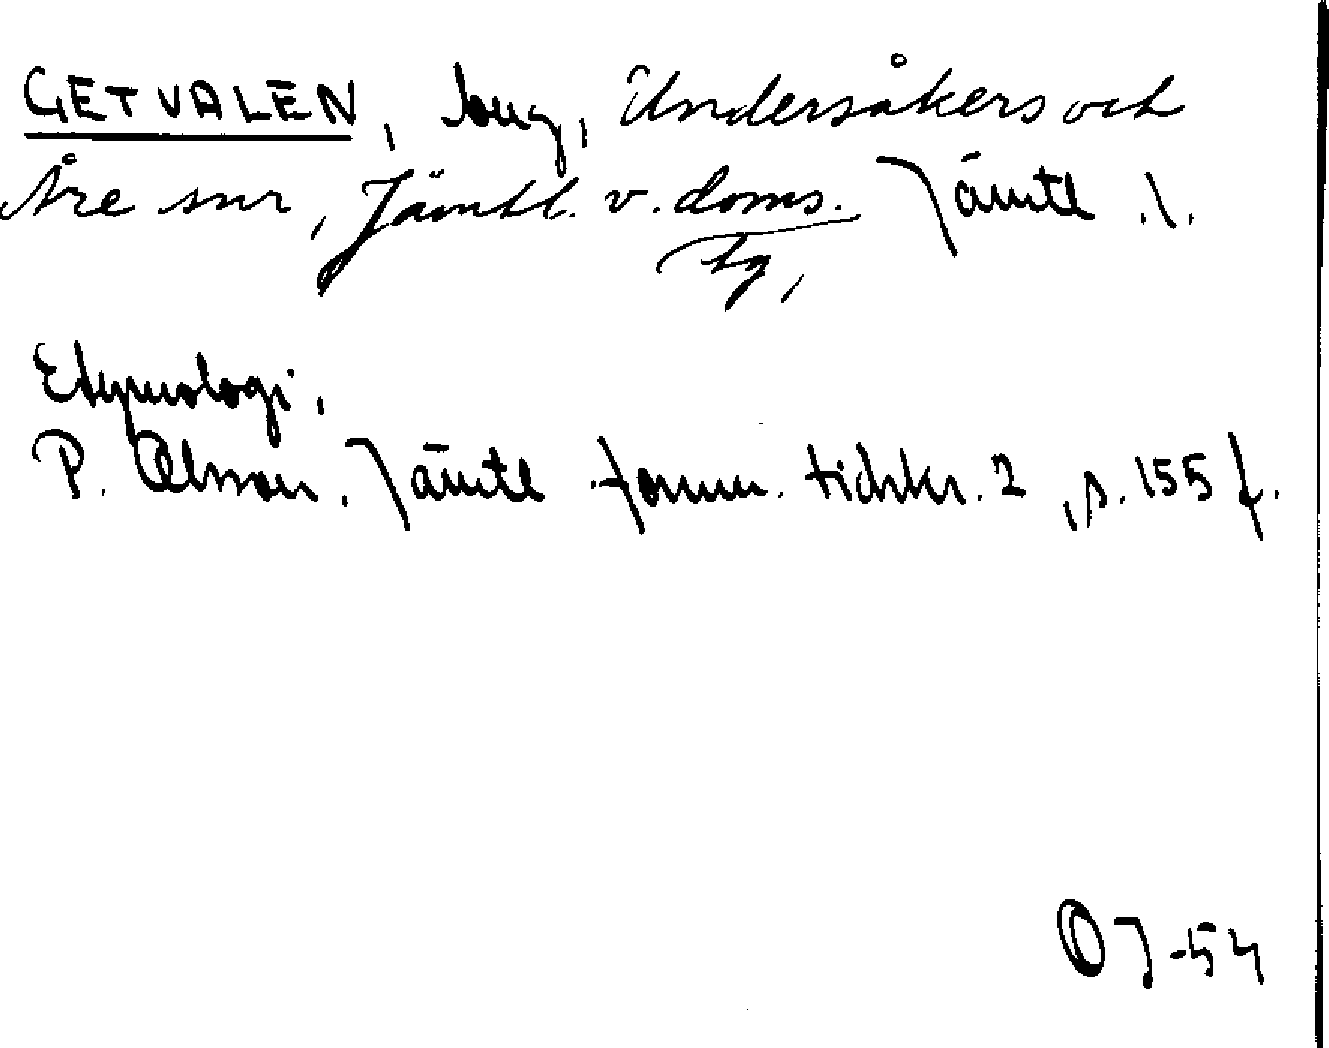 GETVALEN, bug, Undersåkers och
Åre snr, Jämtl. v. doms. Jämtl. l.
tg,
Etymologi,
P. Olsson, Jämtl fornm. tidskr. 2, s. 155 f.
OJ-54